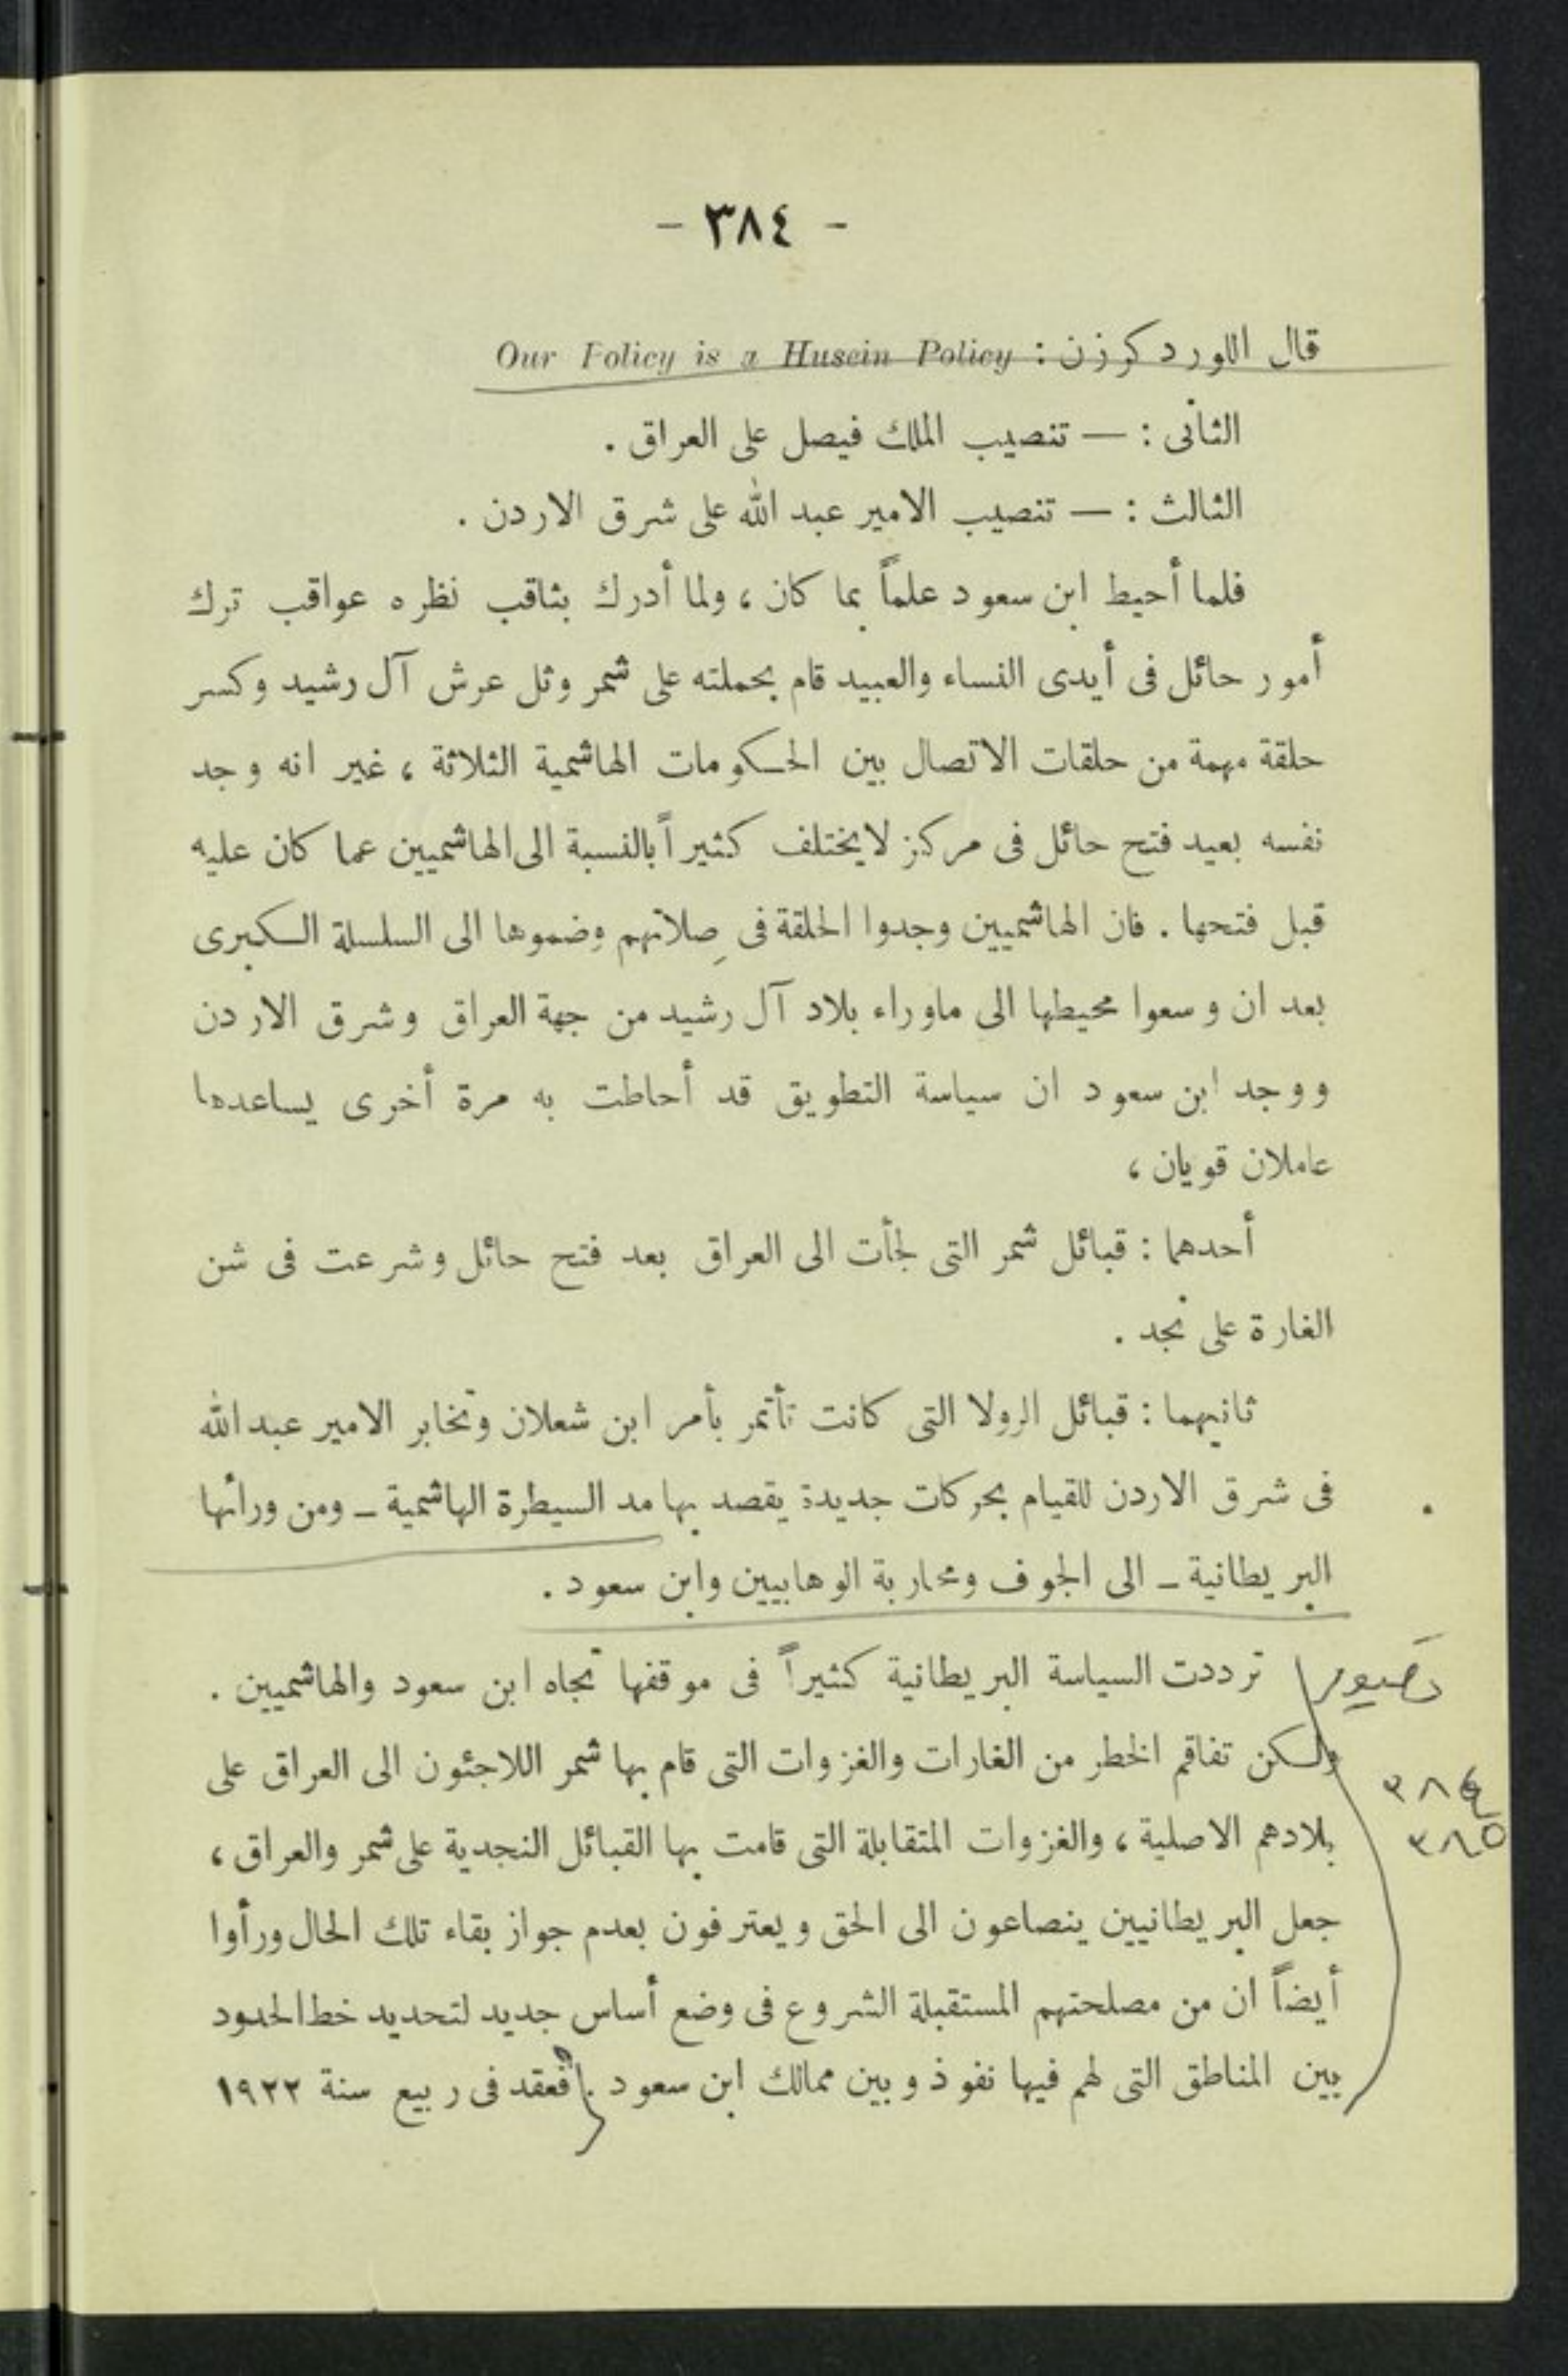 - ٣٨٤ -
قال اللورد كرزن : Our Policy is a Husein Policy
الثانى : — تنصيب الملك فيصل على العراق .
الثالث : — تنصيب الامير عبد الله على شرق الاردن .
فلما أحيط ابن سعود علماً بما كان ، ولما أدرك بثاقب نظره عواقب ترك
أمور حائل فى أيدى النساء والعبيد قام بحملته على شمر وثل عرش آل رشيد وكسر
حلقة مهمة من حلقات الاتصال بين الحكومات الهاشمية الثلاثة ، غير انه وجد
نفسه بعيد فتح حائل فى مركز لايختلف كثيراً بالنسبة الى الهاشميين عما كان عليه
قبل فتحها . فان الهاشميين وجدوا الحلقة فى صلاتهم وضموها الى السلسلة الكبرى
بعد ان وسعوا محيطها الى ماوراء بلاد آل رشيد من جهة العراق وشرق الاردن
ووجد ابن سعود ان سياسة التطويق قد أحاطت به مرة أخرى يساعدها
عاملان قويان ،
أحدهما : قبائل شمر التى لجأت الى العراق بعد فتح حائل وشرعت فى شن
الغارة على نجد .
ثانيهما : قبائل الرولا التى كانت تأتمر بأمر ابن شعلان وتخابر الامير عبد الله
فى شرق الاردن للقيام بحركات جديدة يقصد بها مد السيطرة الهاشمية ــ ومن ورائها
البريطانية ــ الى الجوف ومحاربة الوهابيين وابن سعود .
ترددت السياسة البريطانية كثيراً فى موقفها تجاه ابن سعود والهاشميين .
ولكن تفاقم الخطر من الغارات والغزوات التى قام بها شمر اللاجئون الى العراق على
٣٨٤
بلادهم الاصلية ، والغزوات المتقابلة التى قامت بها القبائل النجدية على شمر والعراق ،
٣٨٥
جعل البريطانيين ينصاعون الى الحق ويعترفون بعدم جواز بقاء تلك الحال ورأوا
أيضاً ان من مصلحتهم المستقبلة الشروع فى وضع أساس جديد لتحديد خط الحدود
بين المناطق التى لهم فيها نفوذ وبين ممالك ابن سعود . فعقد فى ربيع سنة ١٩٢٢